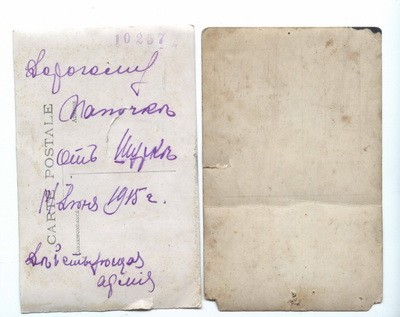 10257
Дорогому
Папочкѣ
отъ Шурки
11 Июня 1915 г.
Дѣйствующая
армія
CARTE POSTALE